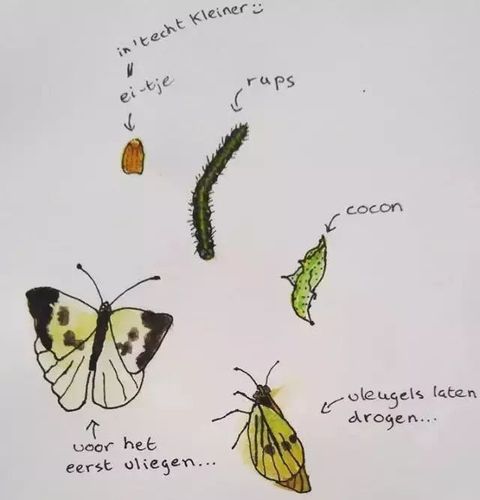 in 't echt kleiner :)
=
ei-tje
rups
cocon
vleugels laten
drogen...
voor het
eerst vliegen...